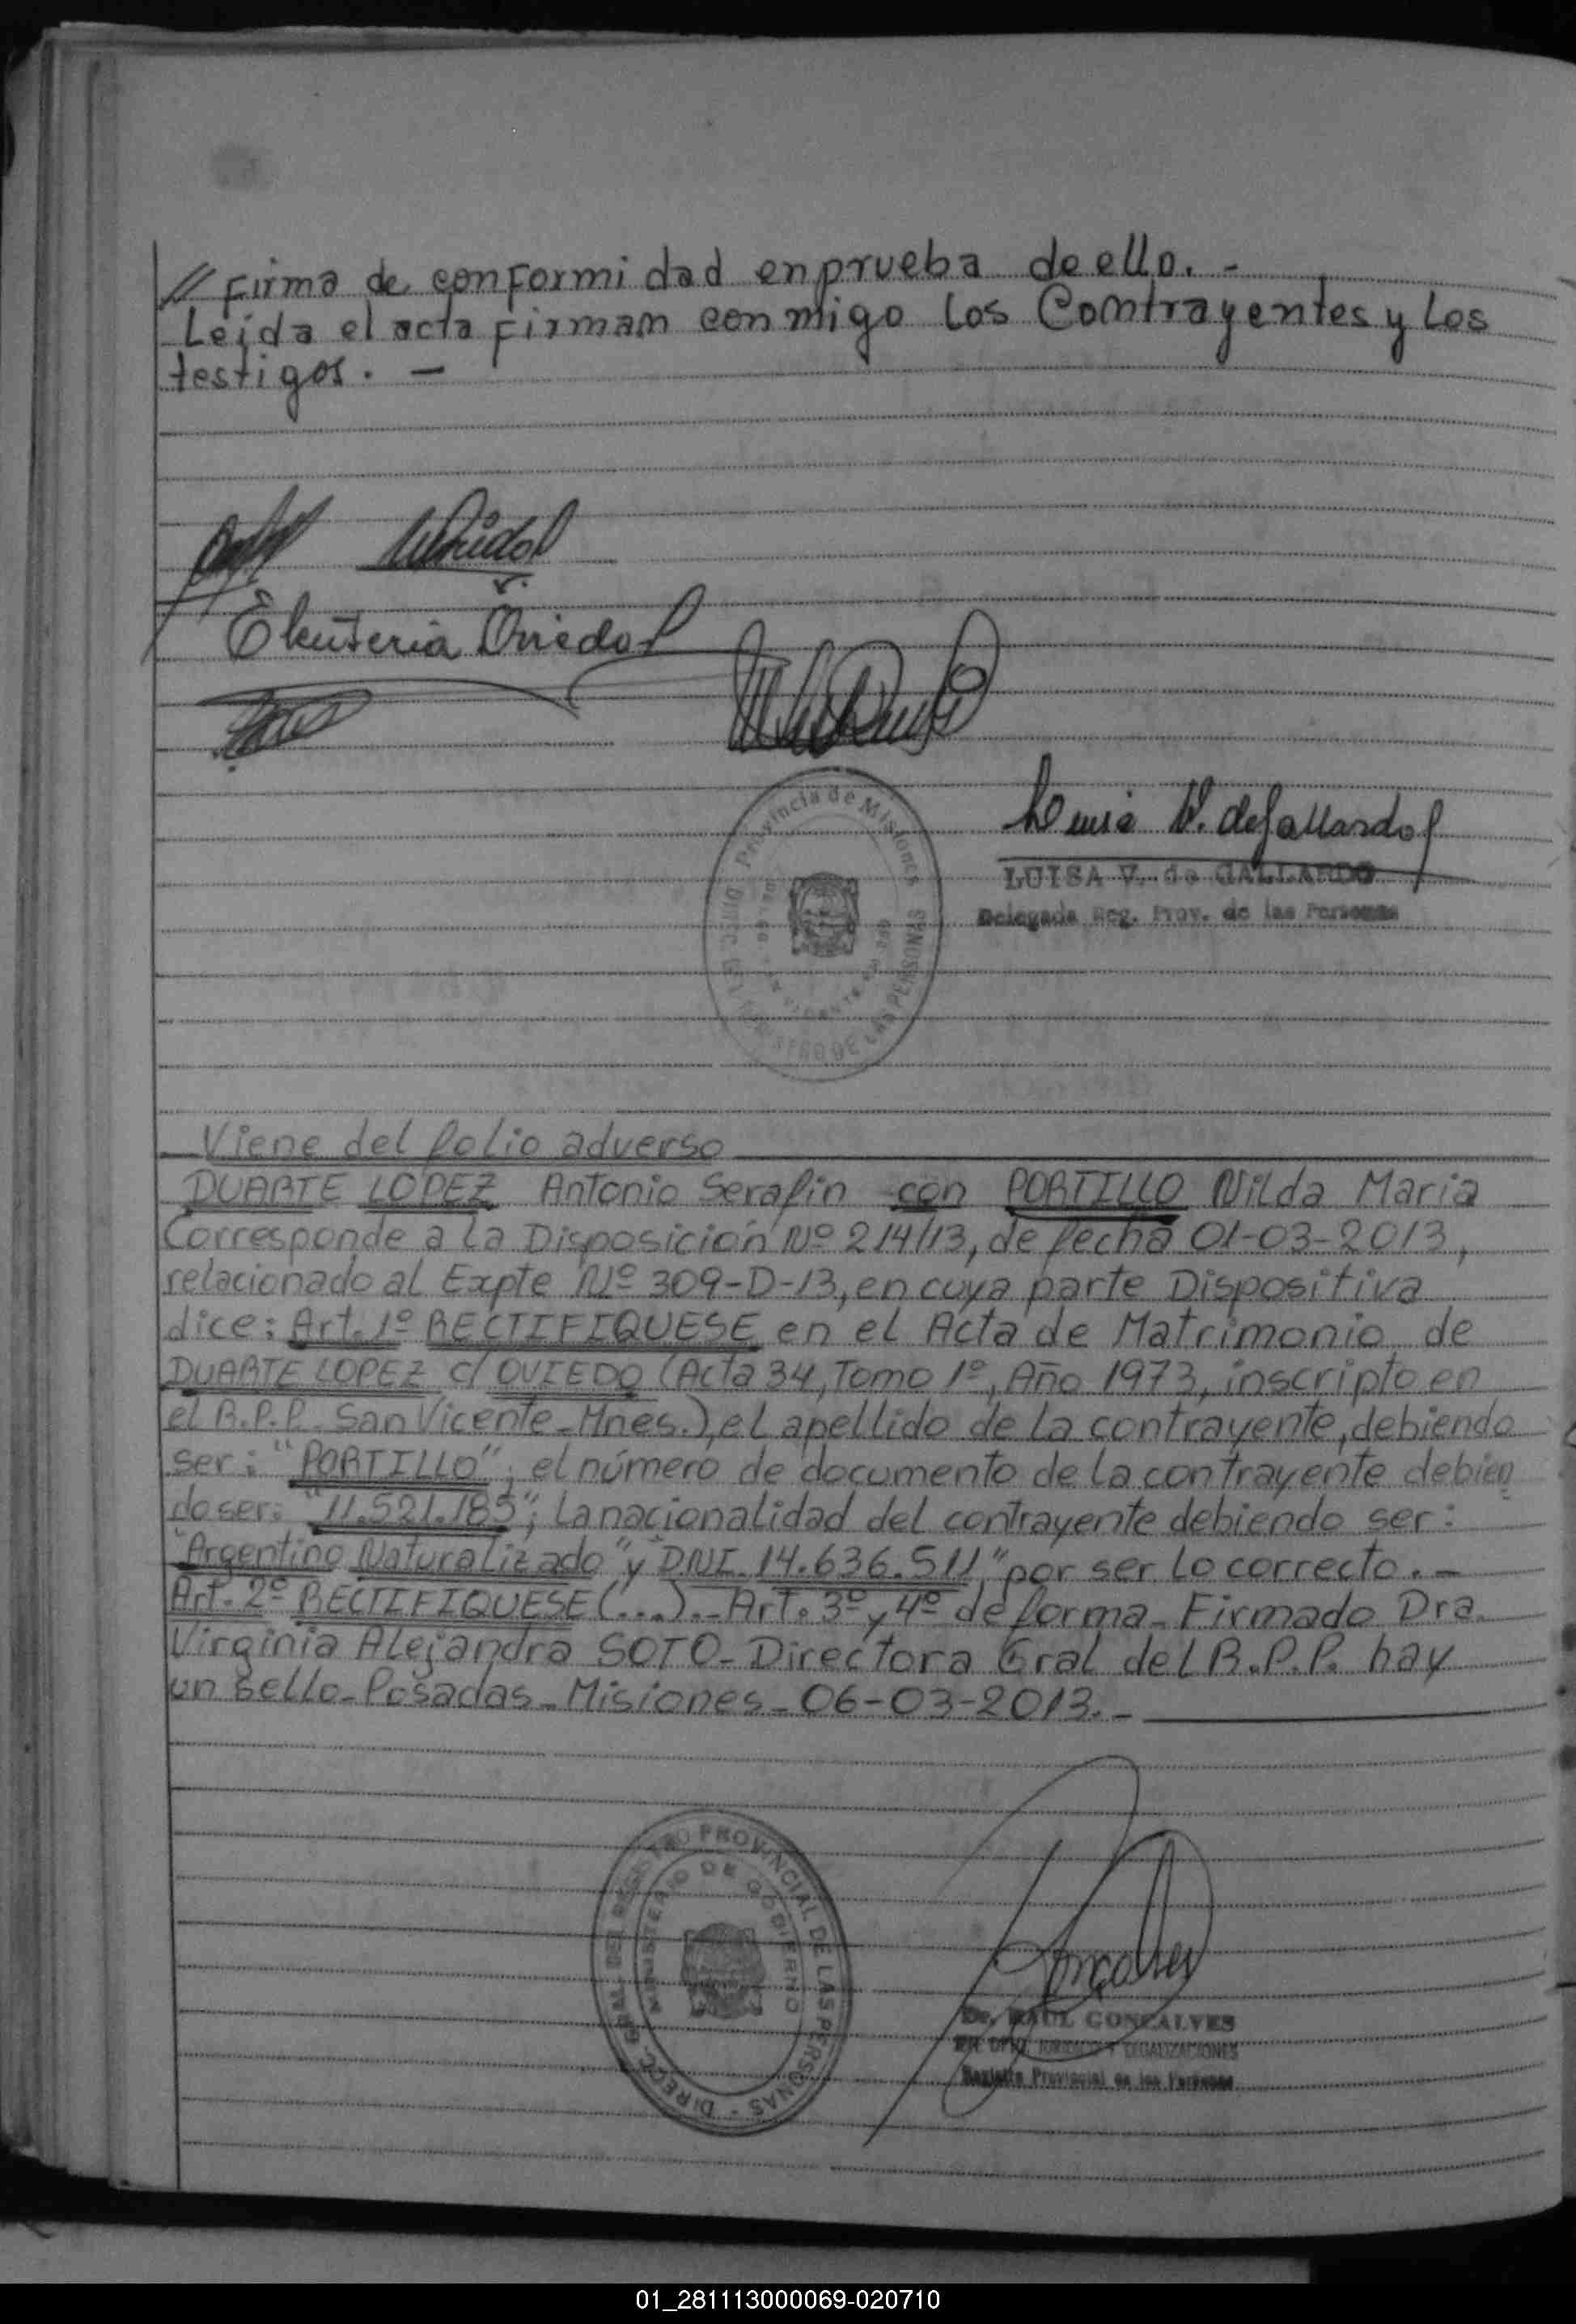 // Firma de conformidad en prueba de ello. -
Leida el acta firman conmigo los Contrayentes y los
testigos. -
Eleuteria Oviedo
Provincia de Misiones
Luisa V. de Gallardo
LUISA V. de GALLARDO
Delegada Reg. Prov. de las Personas
Viene del folio adverso
DUARTE LOPEZ Antonio Serafin con PORTILLO Nilda Maria
Corresponde a la Disposición Nº 214/13, de fecha 01-03-2013,
relacionado al Expte Nº 309-D-13, en cuya parte Dispositiva
dice: Art. 1º RECTIFIQUESE en el Acta de Matrimonio de
DUARTE LOPEZ c/ OVIEDO (Acta 34, Tomo 1º, Año 1973, inscripto en
el R.P.P. San Vicente-Mnes.), el apellido de la contrayente, debiendo
ser: "PORTILLO"; el número de documento de la contrayente debien
do ser: "11.521.185"; la nacionalidad del contrayente debiendo ser:
"Argentino Naturalizado" y "DNI. 14.636.511" por ser lo correcto.-
Art. 2º RECTIFIQUESE (...).- Art. 3º y 4º de forma - Firmado Dra.
Virginia Alejandra SOTO - Directora Gral del R.P.P. hay
un Sello - Posadas - Misiones - 06-03-2013.-
DIRECC. GRAL. DEL REGISTRO PROVINCIAL DE LAS PERSONAS -
MINISTERIO DE GOBIERNO
Dr. RAUL GONCALVES
LEGALIZACIONES
Registro Provincial de las Personas
01_281113000069-020710